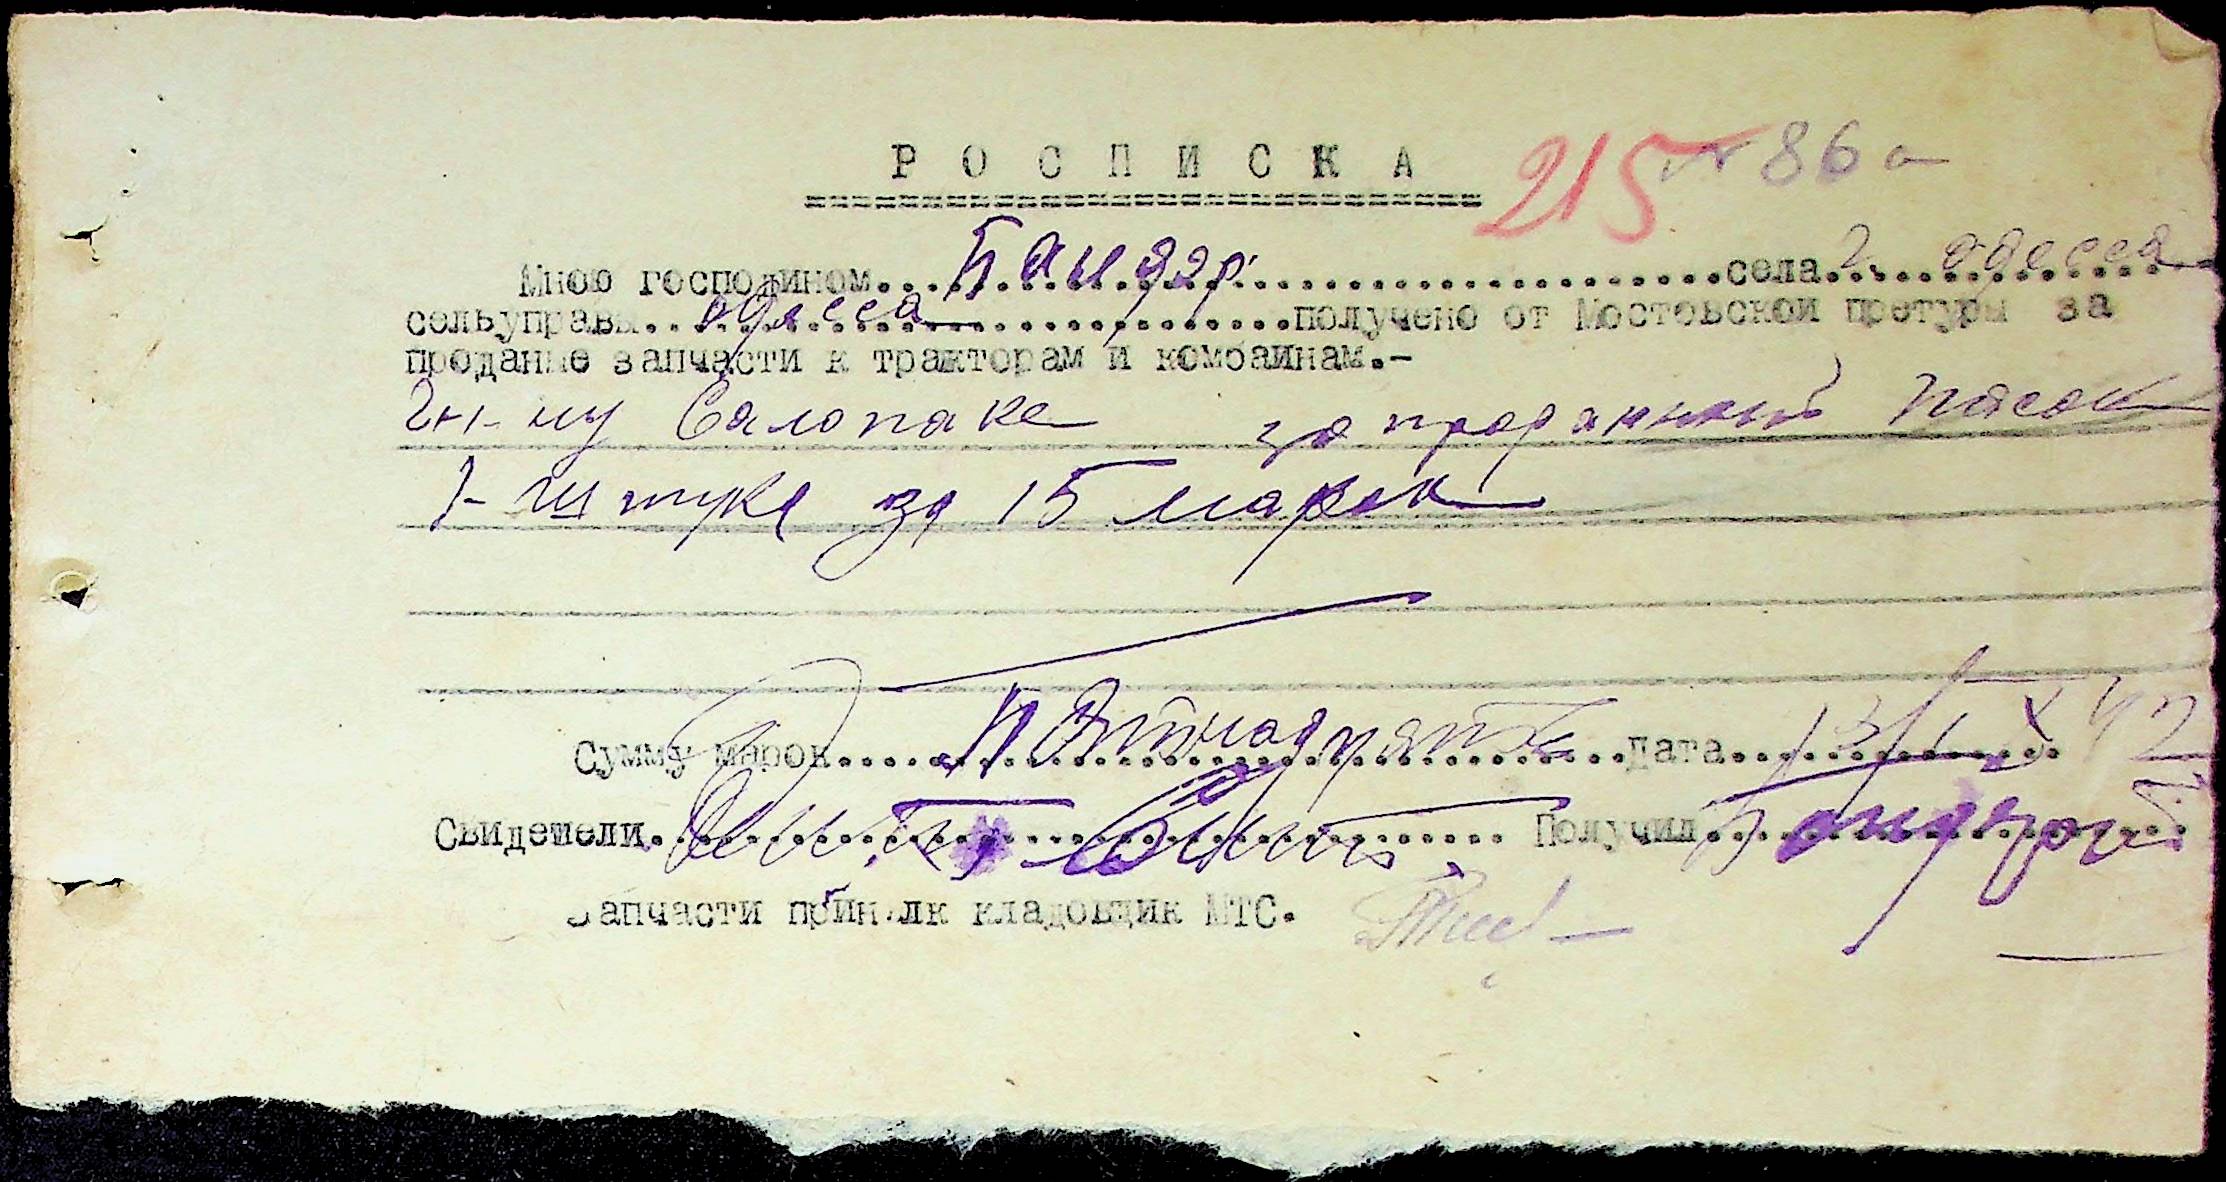 РОСПИСКА 215 № 86 а
Мною господином....Бандар.........села г. Одесса
сельуправы....Одесса............получено от Мостовской претуры за
проданые запчасти к тракторам и комбаинам.-
за проданный пасок
1- штука за 15 марок
Сумму марок....пятнадцять....дата....13/IX 42
Свидетели............ Получил....
Запчасти принялк кладовщик МТС.